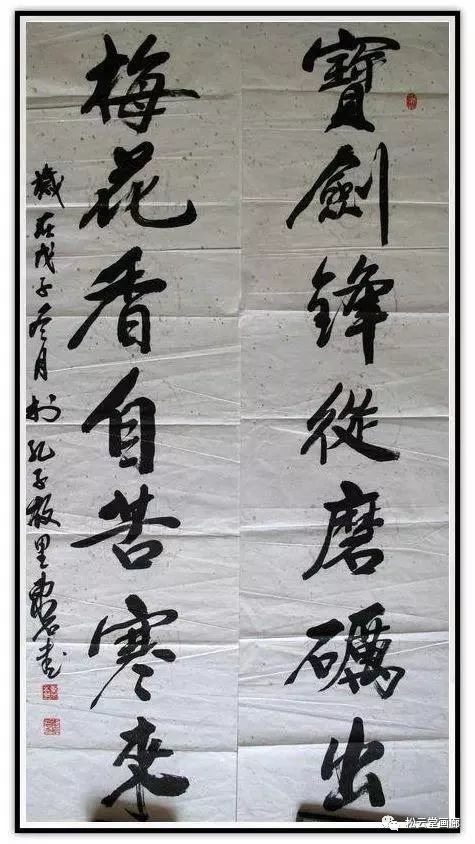 寶劍鋒從磨礪出
梅花香自苦寒來
歲在戊子冬月於孔子故里東君書
松云堂画廊